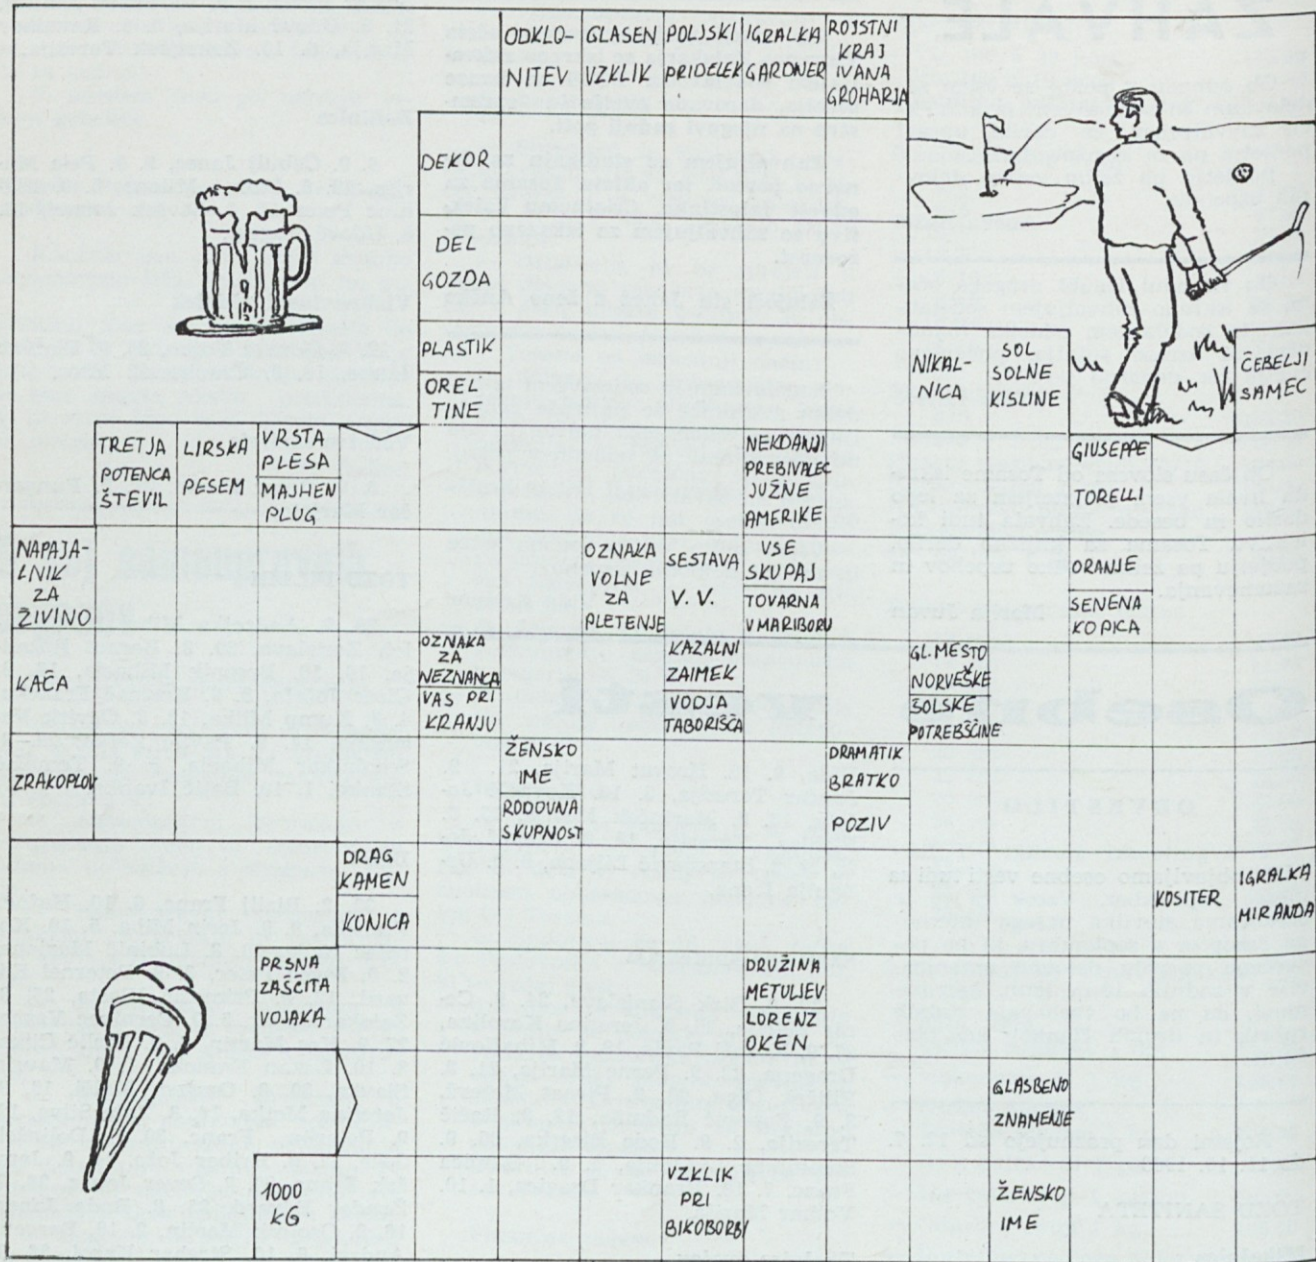 ODKLO-
NITEV
GLASEN
VZKLIK
POLJSKI
PRIDELEK
IGRALKA
GARDNER
ROJSTNI
KRAJ
IVANA
GROHARJA
DEKOR
DEL
GOZDA
PLASTIK
OREL
TINE
NIKAL-
NICA
SOL
SOLNE
KISLINE
ČEBELJI
SAMEC
TRETJA
POTENCA
ŠTEVIL
LIRSKA
PESEM
VRSTA
PLESA
MAJHEN
PLUG
NEKDANJI
PREBIVALEC
JUŽNE
AMERIKE
GIUSEPPE
TORELLI
NAPAJA-
LNIK
ZA
ŽIVINO
OZNAKA
VOLNE
ZA
PLETENJE
SESTAVA
V. V.
VSE
SKUPAJ
TOVARNA
V MARIBORU
ORANJE
SENENA
KOPICA
KAČA
OZNAKA
ZA
NEZNANCA
VAS PRI
KRANJU
KAZALNI
ZAIMEK
VODJA
TABORIŠČA
GL. MESTO
NORVEŠKE
ŠOLSKE
POTREBŠČINE
ZRAKOPLOV
ŽENSKO
IME
RODOVNA
SKUPNOST
DRAMATIK
BRATKO
POZIV
DRAG
KAMEN
KONICA
KOSITER
IGRALKA
MIRANDA
PRSNA
ZAŠČITA
VOJAKA
DRUŽINA
METULJEV
LORENZ
OKEN
GLASBENO
ZNAMENJE
1000
KG
VZKLIK
PRI
BIKOBORBI
ŽENSKO
IME